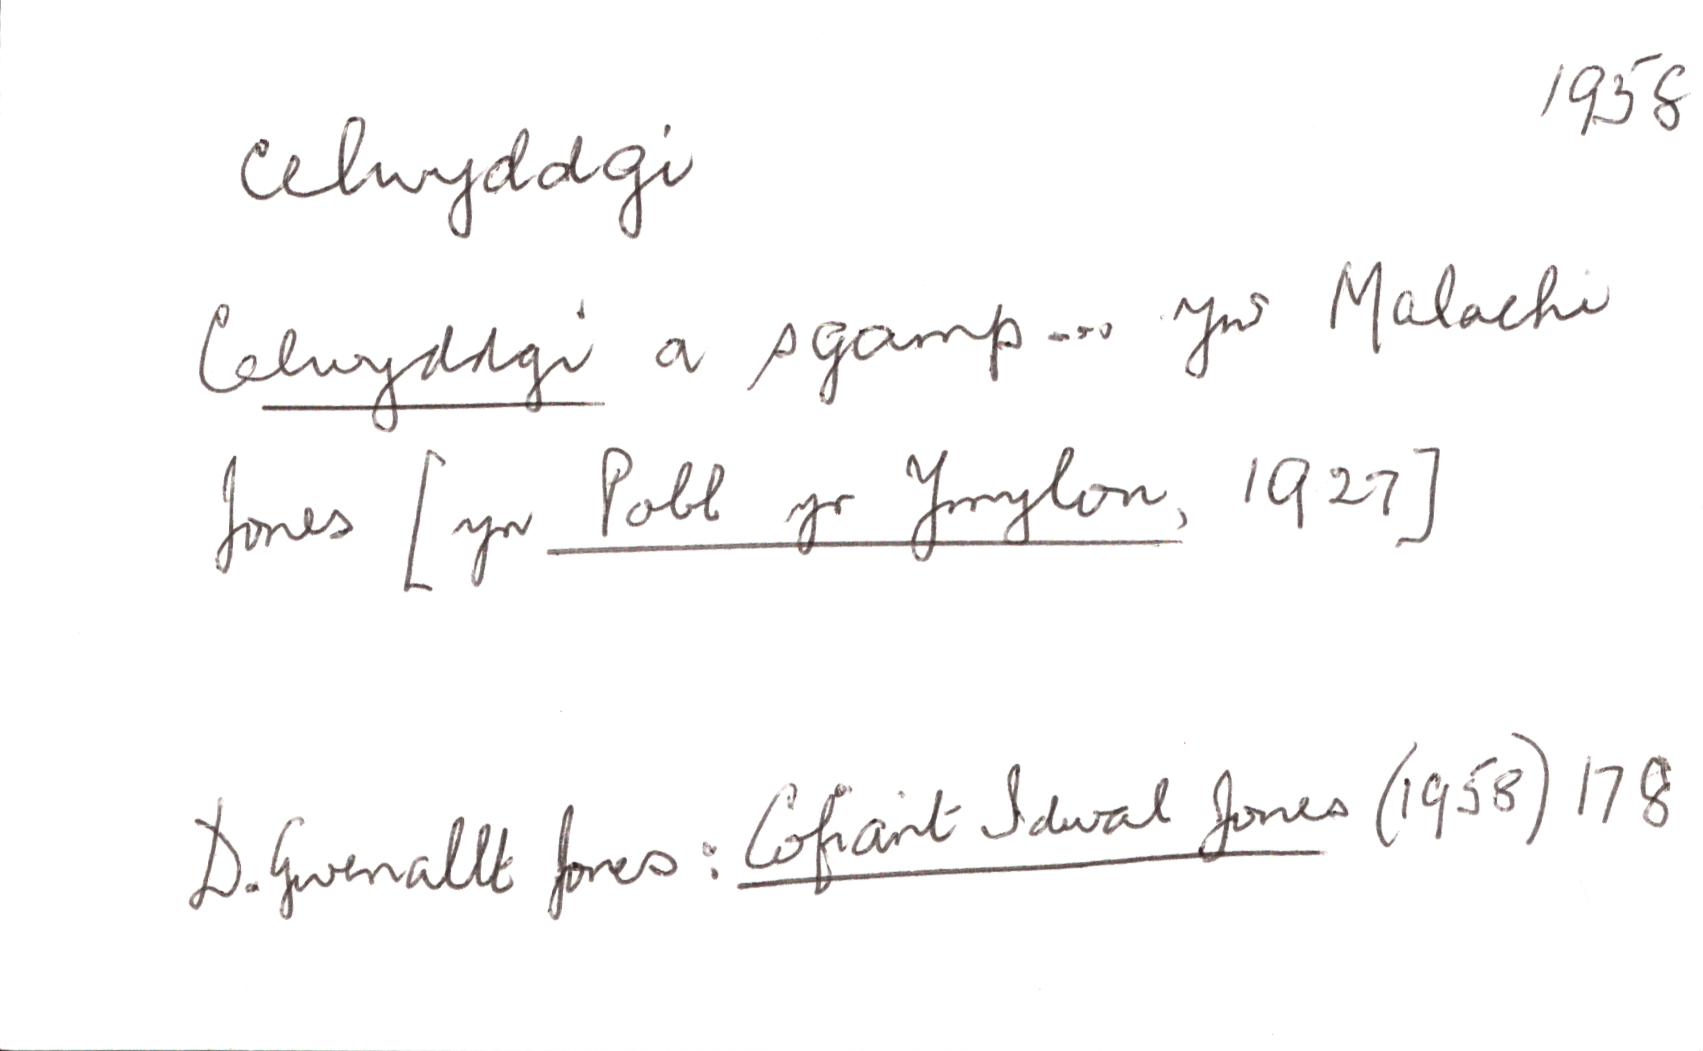 1958
celwyddgi
Celwyddgi a sgamp... yw Malachi
Jones [yn Pobl yr Ymylon, 1927]
D. Gwenallt Jones: Cofiant Idwal Jones (1958) 178